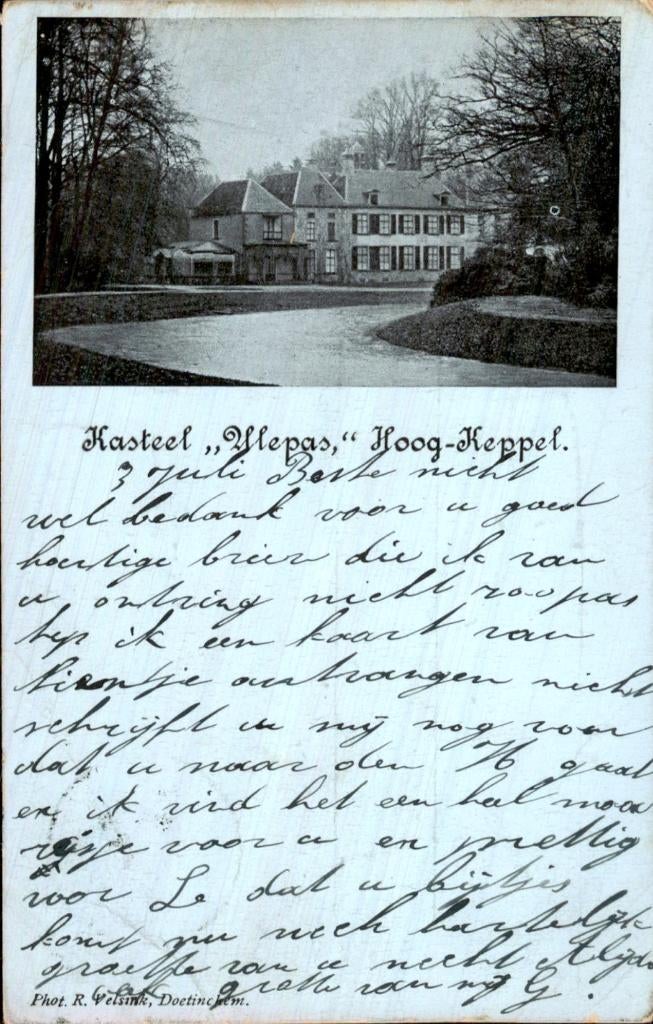 Kasteel „Ulepas,“ Hoog-Keppel.
3 Juli Beste nicht
wel bedank voor u goed
hartige brier die ik van
u ontving nicht zoo pas
ik een kaart van
ontvangen nicht
schrijft u mij nog voor
dat u naar den H gaat
en ik vind het een heel mooi
reisje voor u en prettig
voor Le dat u bijtjes
komt nu nech hartelijk
groette van u necht
groette van mij G.
Phot. R. Velsink, Doetinchem.